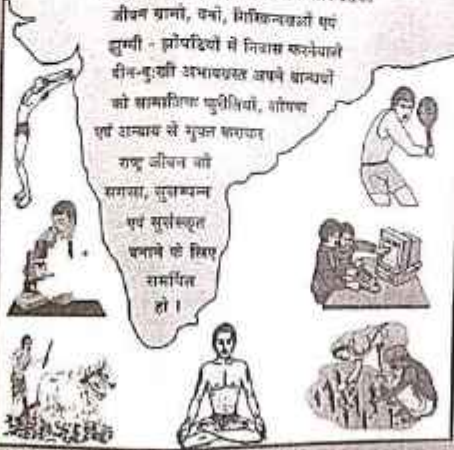 जीवन ग्रामों, वनों, गिरिकन्दराओं एवं
झुग्गी - झोंपड़ियों में निवास करनेवाले
दीन-दुःखी अभावग्रस्त अपने बान्धवों
को सामाजिक कुरीतियों, शोषण
एवं अन्याय से मुक्त कराकर
राष्ट्र जीवन को
समरस, सुसम्पन्न
एवं सुसंस्कृत
बनाने के लिए
समर्पित
हो ।